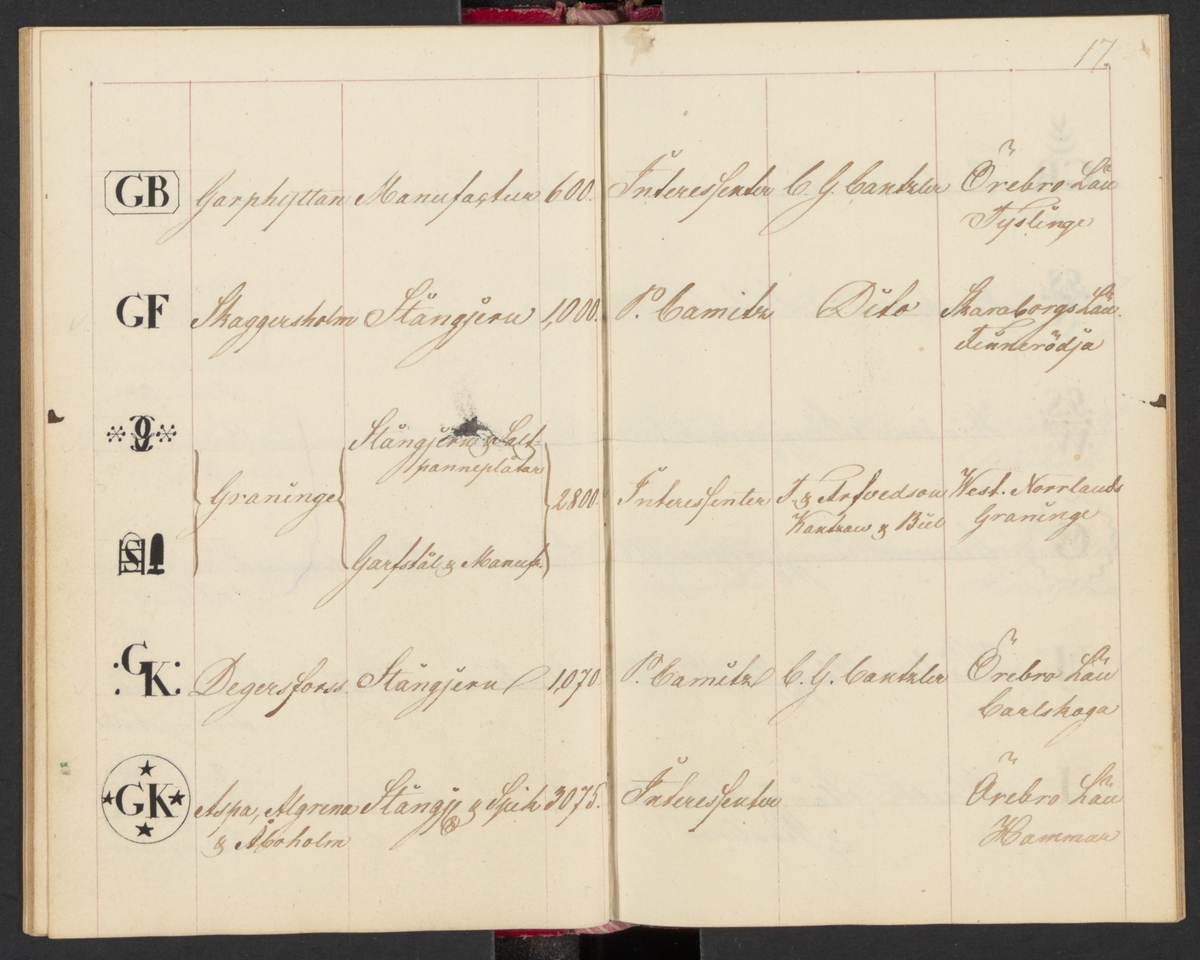 17.
GB Garphyttan Manufactur 600. Interessenter C. G. Cantzler Örebro Län
Tyslinge
GF Skaggersholm Stångjern 1,000. P. Camitz Dito Skaraborgs Län.
Finnerödja
Stångjern & Salt-
panneplåtar
Graninge 2800. Interessenter T. & Arfvedson West. Norrlands
& Biel Graninge
Garfstål & Manuf.
GK Degersforss Stångjern 1,070 P. Camitz C. G. Cantzler Örebro Län
Carlskoga
GK Aspa, Algrena Stångje & Spik 3075. Interessenter Örebro Län
& Åboholm Hammar